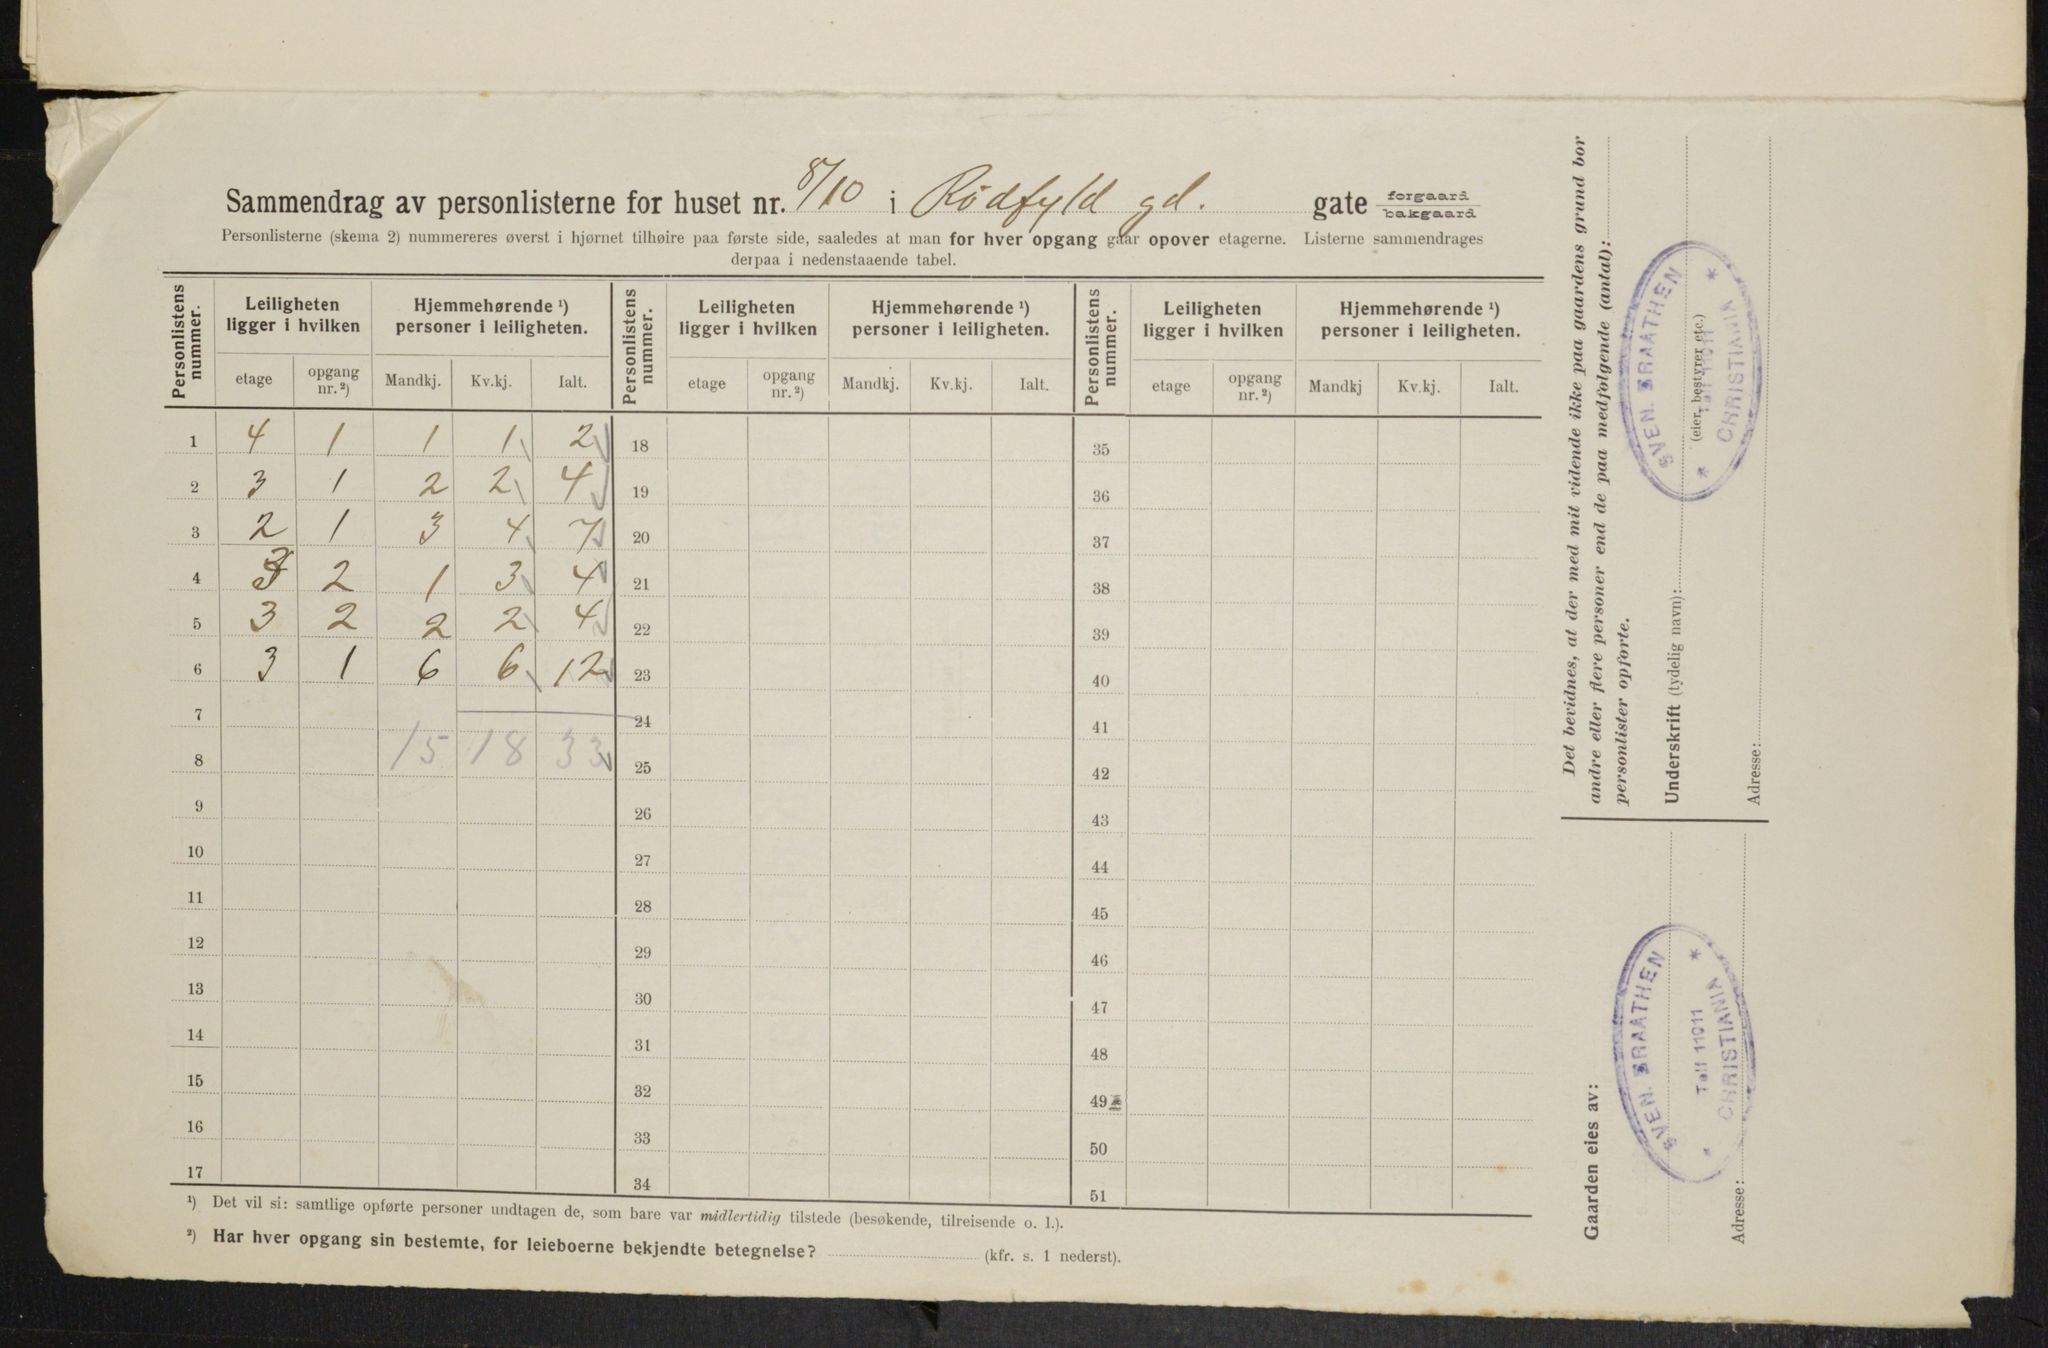 Sammendrag av personlisterne for huset nr. 8/10 i Rödfyld gd. gate forgaard bakgaard
Personlisterne (skema 2) nummereres øverst i hjørnet tilhøire paa første side, saaledes at man for hver opgang gaar opover etagerne. Listerne sammendrages
derpaa i nedenstaaende tabel.
Personlistens nummer. Leiligheten ligger i hvilken Hjemmehørende ¹) personer i leiligheten. Personlistens nummer. Leiligheten ligger i hvilken Hjemmehørende ¹) personer i leiligheten. Personlistens nummer. Leiligheten ligger i hvilken Hjemmehørende ¹) personer i leiligheten.
etage opgang nr. ²) Mandkj. Kv.kj. Ialt. etage opgang nr. ²) Mandkj. Kv.kj. Ialt. etage opgang nr. ²) Mandkj Kv.kj. Ialt.
1 4 1 1 1 2 18 35
2 3 1 2 2 4 19 36
3 2 1 3 4 7 20 37
4 2 1 3 4 21 38
5 3 2 2 2 4 22 39
6 3 1 6 6 12 23 40
7 24 41
8 15 18 33 25 42
9 26 43
10 27 44
11 28 45
12 29 46
13 30 47
14 31 48
15 32 49
16 33 50
17 34 51
¹) Det vil si: samtlige opførte personer undtagen de, som bare var midlertidig tilstede (besøkende, tilreisende o. l.).
²) Har hver opgang sin bestemte, for leieboerne bekjendte betegnelse? (kfr. s. 1 nederst).
Det bevidnes, at der med mit vidende ikke paa gaardens grund bor
andre eller flere personer end de paa medfølgende (antal):
personlister opførte.
Underskrift (tydelig navn):
(eier, bestyrer etc.)
Adresse:
SVEN. BRAATHEN
Telf 11911
CHRISTIANIA
Gaarden eies av:
Adresse:
SVEN. BRAATHEN
Telf 11911
CHRISTIANIA